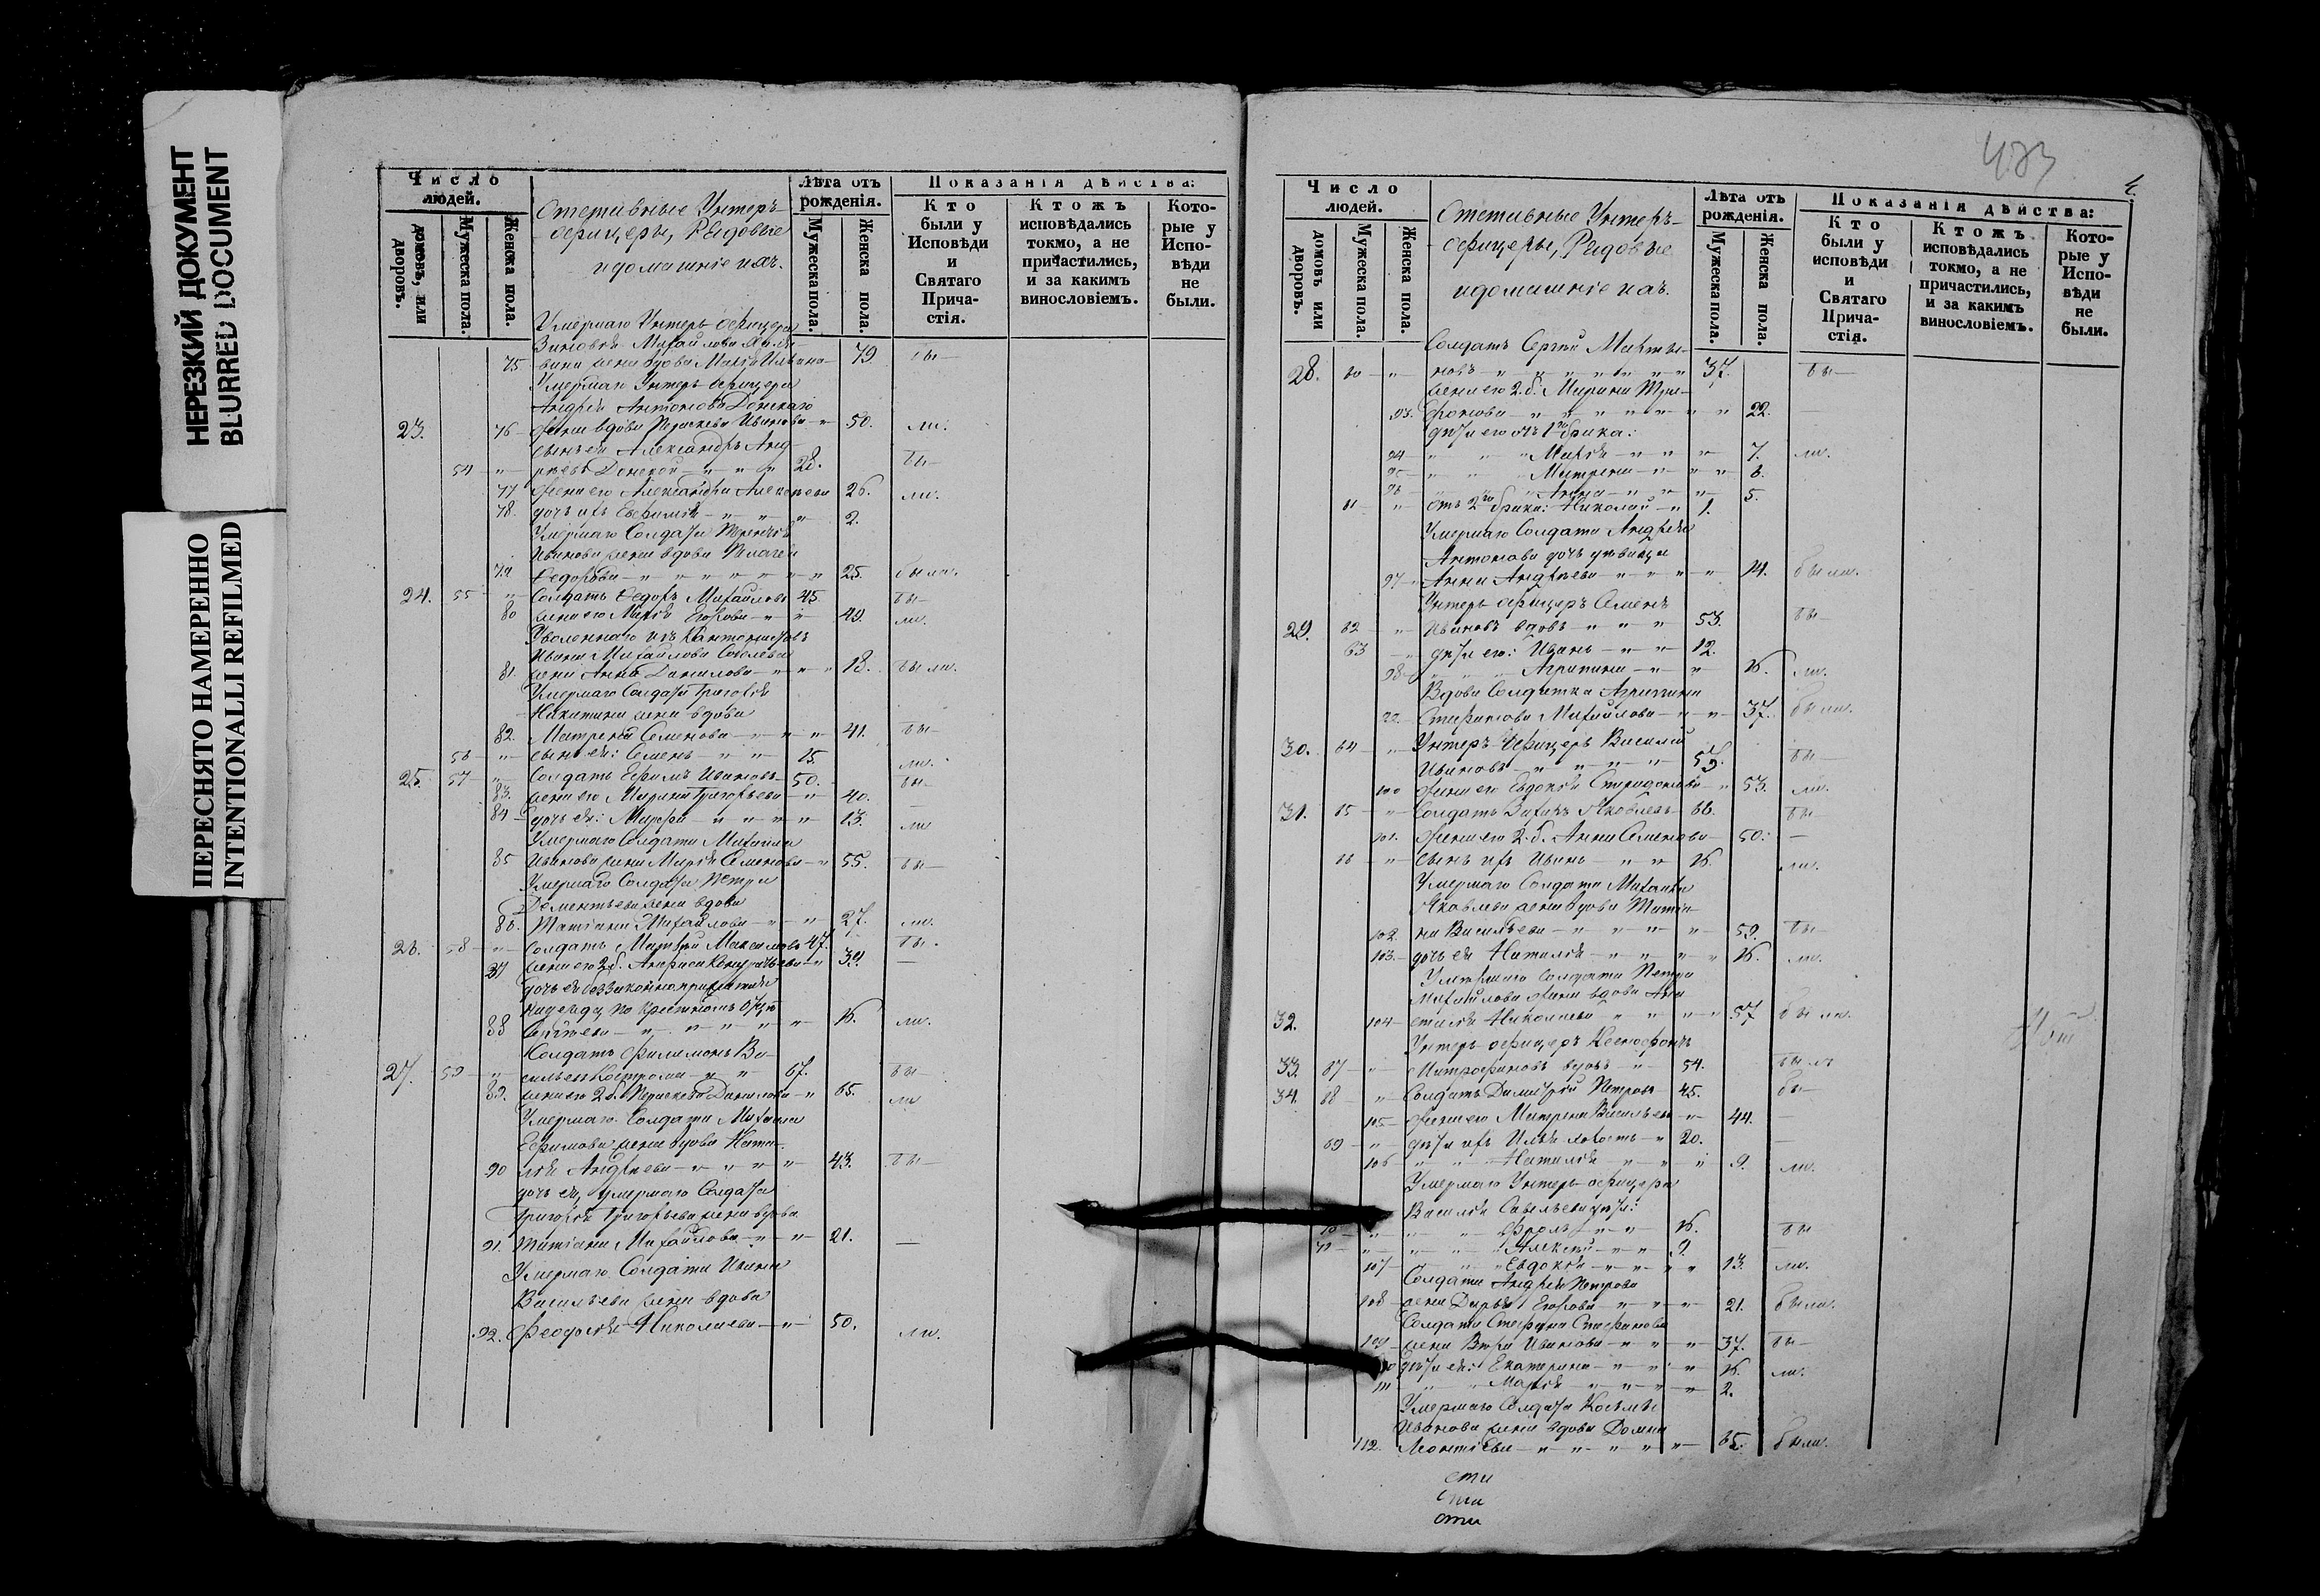 НЕРЕЗКИЙ ДОКУМЕНТ
BLURRED DOCUMENT
ПЕРЕСНЯТО НАМЕРЕННО
INTENTIONALLI REFILMED
Число людей.
домовъ, или дворовъ.
Мужеска пола.
Женска пола.
Отставные Унтеръ-
офицеры, Рядовые
и домашніе ихъ.
Лѣта отъ рожденія.
Мужеска пола.
Женска пола.
Показанія дѣйства:
Кто были у Исповѣди и Святаго Прича- стія.
Ктожъ исповѣдались токмо, а не причастились, и за какимъ винословіемъ.
Кото- рые у Испо- вѣди не были.
Умершаго Унтеръ-офицера
Зиновія Михайлова
75 вина жена вдова Марѳа Ильина 79. бы—
Умершаго Унтеръ-офицера
Андрея Антонова Донскаго
23. 76 жена вдова Параскева Иванова 50. ли.
сынъ ея Александръ Анд-
54 " реевъ Донской 28. бы—
77 жена его Александра Алексѣева 26. ли.
78. дочь ихъ Евфимія 2.
Умершаго Солдата Терентія
Иванова жена вдова Пелагея
79 Ѳедорова 25. были.
24. 55 " Солдатъ Ѳедоръ Михайловъ 45. бы—
80 жена его Марѳа Егорова 49. ли.
Уволеннаго изъ Кантонистовъ
Ивана Михайлова Соболева
81. жена Анна Данилова 18. были.
Умершаго Солдата Григорія
Никитина жена вдова
82. Матрена Семенова 41. бы—
56 " сынъ ея: Семенъ 15. ли.
25. 57 " Солдатъ Ефимъ Ивановъ 50. бы—
83. жена его Марина Григорьева 40. —
84 дочь ея: Марѳа 13. ли
Умершаго Солдата Михаила
85 Иванова жена Марія Семенова 55. бы—
Умершаго Солдата Петра
Дементьева жена вдова
86. Татіана Михайлова 27. ли.
26. 58 " Солдатъ Матвѣй Максимовъ 47. бы.
87 жена его 2 б. Анфиса Кондратьева 39. —
дочь ея беззаконноприжитая
Надежда, по крестномъ отцѣ
88 Сергѣева 16. ли.
Солдатъ Филимонъ Ва-
27. 59 " сильевъ Кострома 67. бы—
89. жена его 2 б. Параскева Данилова 65. ли
Умершаго Солдата Михаила
Ефимова жена вдова Ната-
90 лія Андреева 43. бы—
дочь ея, умершаго Солдата
Григорія Григорьева жена вдова
91. Татіана Михайлова 21. —
Умершаго Солдата Ивана
Васильева жена вдова
92. Феодосія Николаева 50. ли.
4.
Число людей.
домовъ или дворовъ.
Мужеска пола.
Женска пола.
Отставные Унтеръ-
офицеры, Рядовые
и домашніе ихъ.
Лѣта отъ рожденія.
Мужеска пола.
Женска пола.
Показанія дѣйства:
Кто были у исповѣди и Святаго Прича- стія.
Ктожъ исповѣдались токмо, а не причастились, и за какимъ винословіемъ.
Кото- рые у Испо- вѣди не были.
Солдатъ Сергѣй Марты-
28. 60 " новъ 37. бы—
жена его 2. б. Марина Три-
93. фонова 22. —
дѣти его отъ 1го брака:
94 Марія 7. ли.
95 Матрена 6.
96 Анна 5.
61 " отъ 2го брака: Николай 1.
Умершаго Солдата Андрея
Антонова дочь дѣвица
97 Анна Андреева 14. были.
Унтеръ-офицеръ Семенъ
29. 62 " Ивановъ вдовъ 53. бы—
63 " дѣти его: Иванъ 12.
98 Агрипина 16. ли.
Вдова Солдатка Агрипина
99 Стефанова Михайлова 37. были.
30. 64 " Унтеръ-Офицеръ Василій
Ивановъ 59. бы—
100 жена его Евдокія Спиридонова 53. ли.
31. 65 " Солдатъ Захаръ Яковлевъ 66. бы
101. жена его 2. б. Анна Семенова 50. —
66 " сынъ ихъ Иванъ 16. ли.
Умершаго Солдата Михаила
Яковлева жена вдова Татіа-
102. на Васильева 59. бы
103. дочь ея Наталія 16. ли.
Умершаго Солдата Петра
Михайлова жена вдова Ана-
32. 104 стасія Николаева 57 были.
Унтеръ-офицеръ Ксенофонтъ
33. 67 " Митрофановъ вдовъ 54. былъ
34. 68 " Солдатъ Димитрій Петровъ 45. бы—
105 жена его Матрена Васильева 44. —
69 " дѣти ихъ Илья холостъ 20. —
106 Наталія 9. ли.
Умершаго Унтеръ-офицера
Василія Савельева дѣти:
70 " Фролъ 16. бы
71 " Алексѣй 9. —
107 Евдокія 13. ли.
Солдата Андрея Петрова
108 жена Дарья Егорова 21. были.
Солдата Стефана Стефанова
109 жена Вѣра Иванова 37. бы—
110 дѣти ея: Екатерина 16. ли.
111 Марія 2.
Умершаго Солдата Косьмы
Иванова жена вдова Домна
112. Леонтіева 65. были.